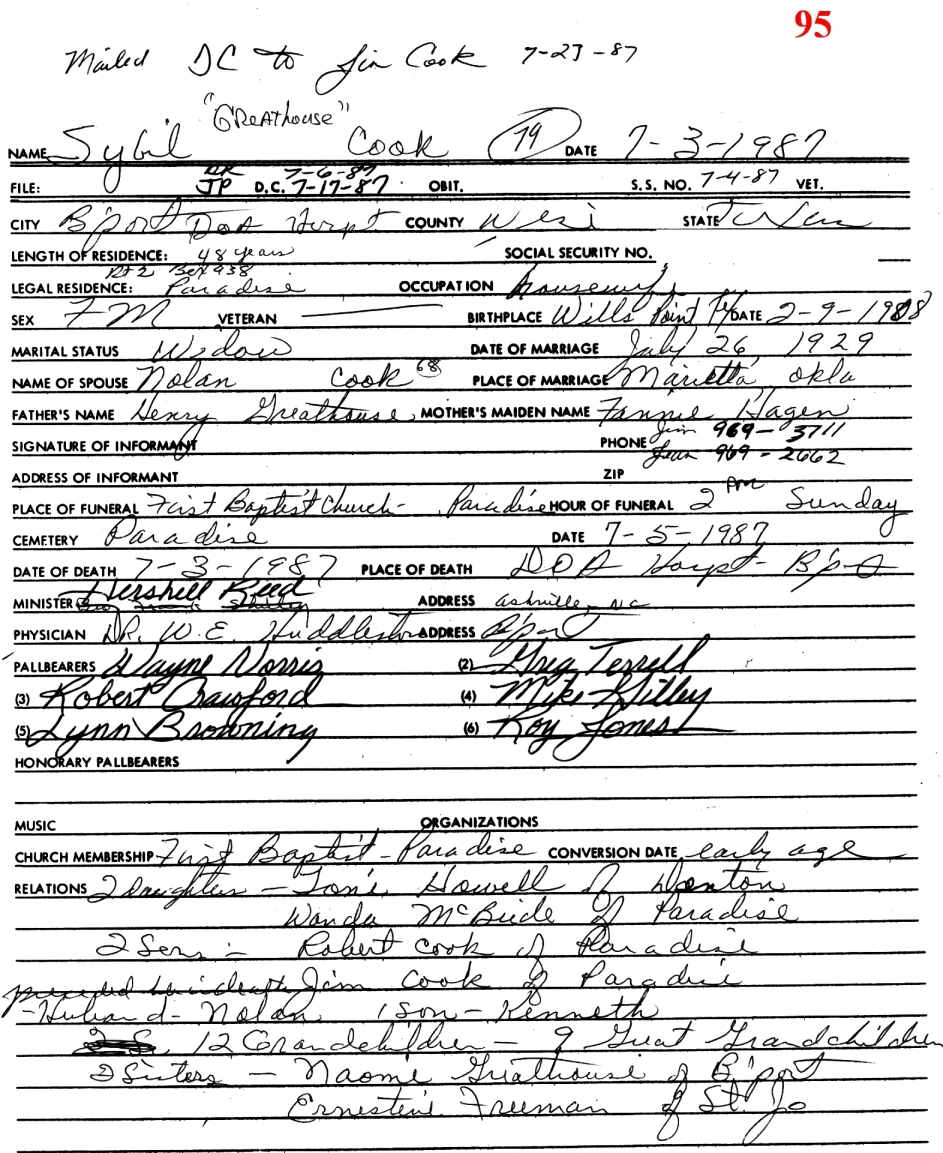 95
Mailed DC to Jim Cook 7-23-87
"GREAThouse"
NAME Sybil Cook 79 DATE 7-3-1987
DR 7-6-87
FILE: JP D.C. 7-17-87 OBIT. S.S. NO. 7-4-87 VET.
CITY B'port DOA Hospt COUNTY Wise STATE Texas
LENGTH OF RESIDENCE: 48 years SOCIAL SECURITY NO.
Rt 2 Box 938
LEGAL RESIDENCE: Paradise OCCUPATION housewife
SEX FM VETERAN BIRTHPLACE Wills Point Tx DATE 2-9-1908
MARITAL STATUS Widow DATE OF MARRIAGE July 26, 1929
NAME OF SPOUSE Nolan Cook 68 PLACE OF MARRIAGE Marietta, Okla
FATHER'S NAME Henry Greathouse MOTHER'S MAIDEN NAME Fannie Hagen
SIGNATURE OF INFORMANT PHONE Jim 969-3711
Jean 969-2662
ADDRESS OF INFORMANT ZIP
PLACE OF FUNERAL First Baptist Church - Paradise HOUR OF FUNERAL 2 PM Sunday
CEMETERY Paradise DATE 7-5-1987
DATE OF DEATH 7-3-1987 PLACE OF DEATH DOA Hospt - B'port
MINISTER Hershill Reed ADDRESS Ashville, NC
PHYSICIAN DR. W.E. Huddleston ADDRESS B'port
PALLBEARERS Wayne Norris (2) Greg Terrell
(3) Robert Crawford (4) Mike Hilley
(5) Lynn Browning (6) Roy Jones
HONORARY PALLBEARERS
MUSIC ORGANIZATIONS
CHURCH MEMBERSHIP First Baptist - Paradise CONVERSION DATE early age
RELATIONS 2 Daughters - Howell of Denton
Wanda McBride of Paradise
2 Sons - Robert Cook of Paradise
preceded her in death Jim Cook of Paradise
-Husband - Nolan 1 son - Kenneth
12 Grandchildren - 9 Great Grandchildren
2 Sisters - Naomi Greathouse of B'port
Ernestine Freeman of St. Jo